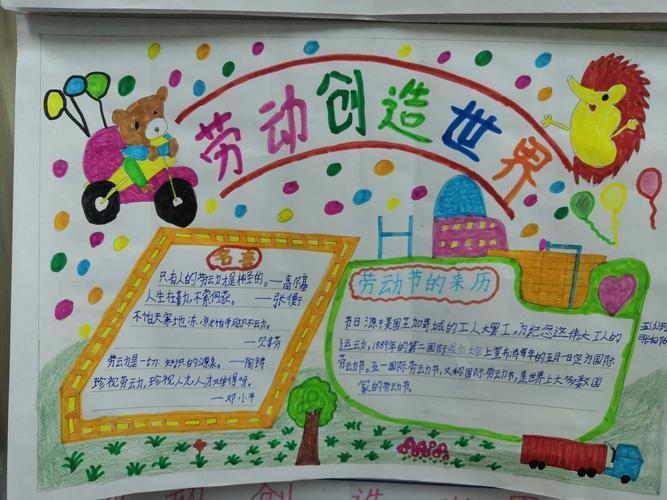 劳动创造世界
名言
只有人的劳动才是神圣的。——高尔基
人生在勤,不索何获。——张衡
不怕天寒地冻,就怕手脚不动。
劳动是一切知识的源泉。——陶铸
珍视劳动,珍视人才,人才难得呀。
——邓小平
劳动节的来历
节日源于美国芝加哥城的工人大罢工,为纪念这伟大工人的
运动,1889年的第二国际成立大会上宣布将每年的五月一日定为国际
劳动节。五一国际劳动节,又称国际劳动节,是世界上大多数国
家的劳动节。